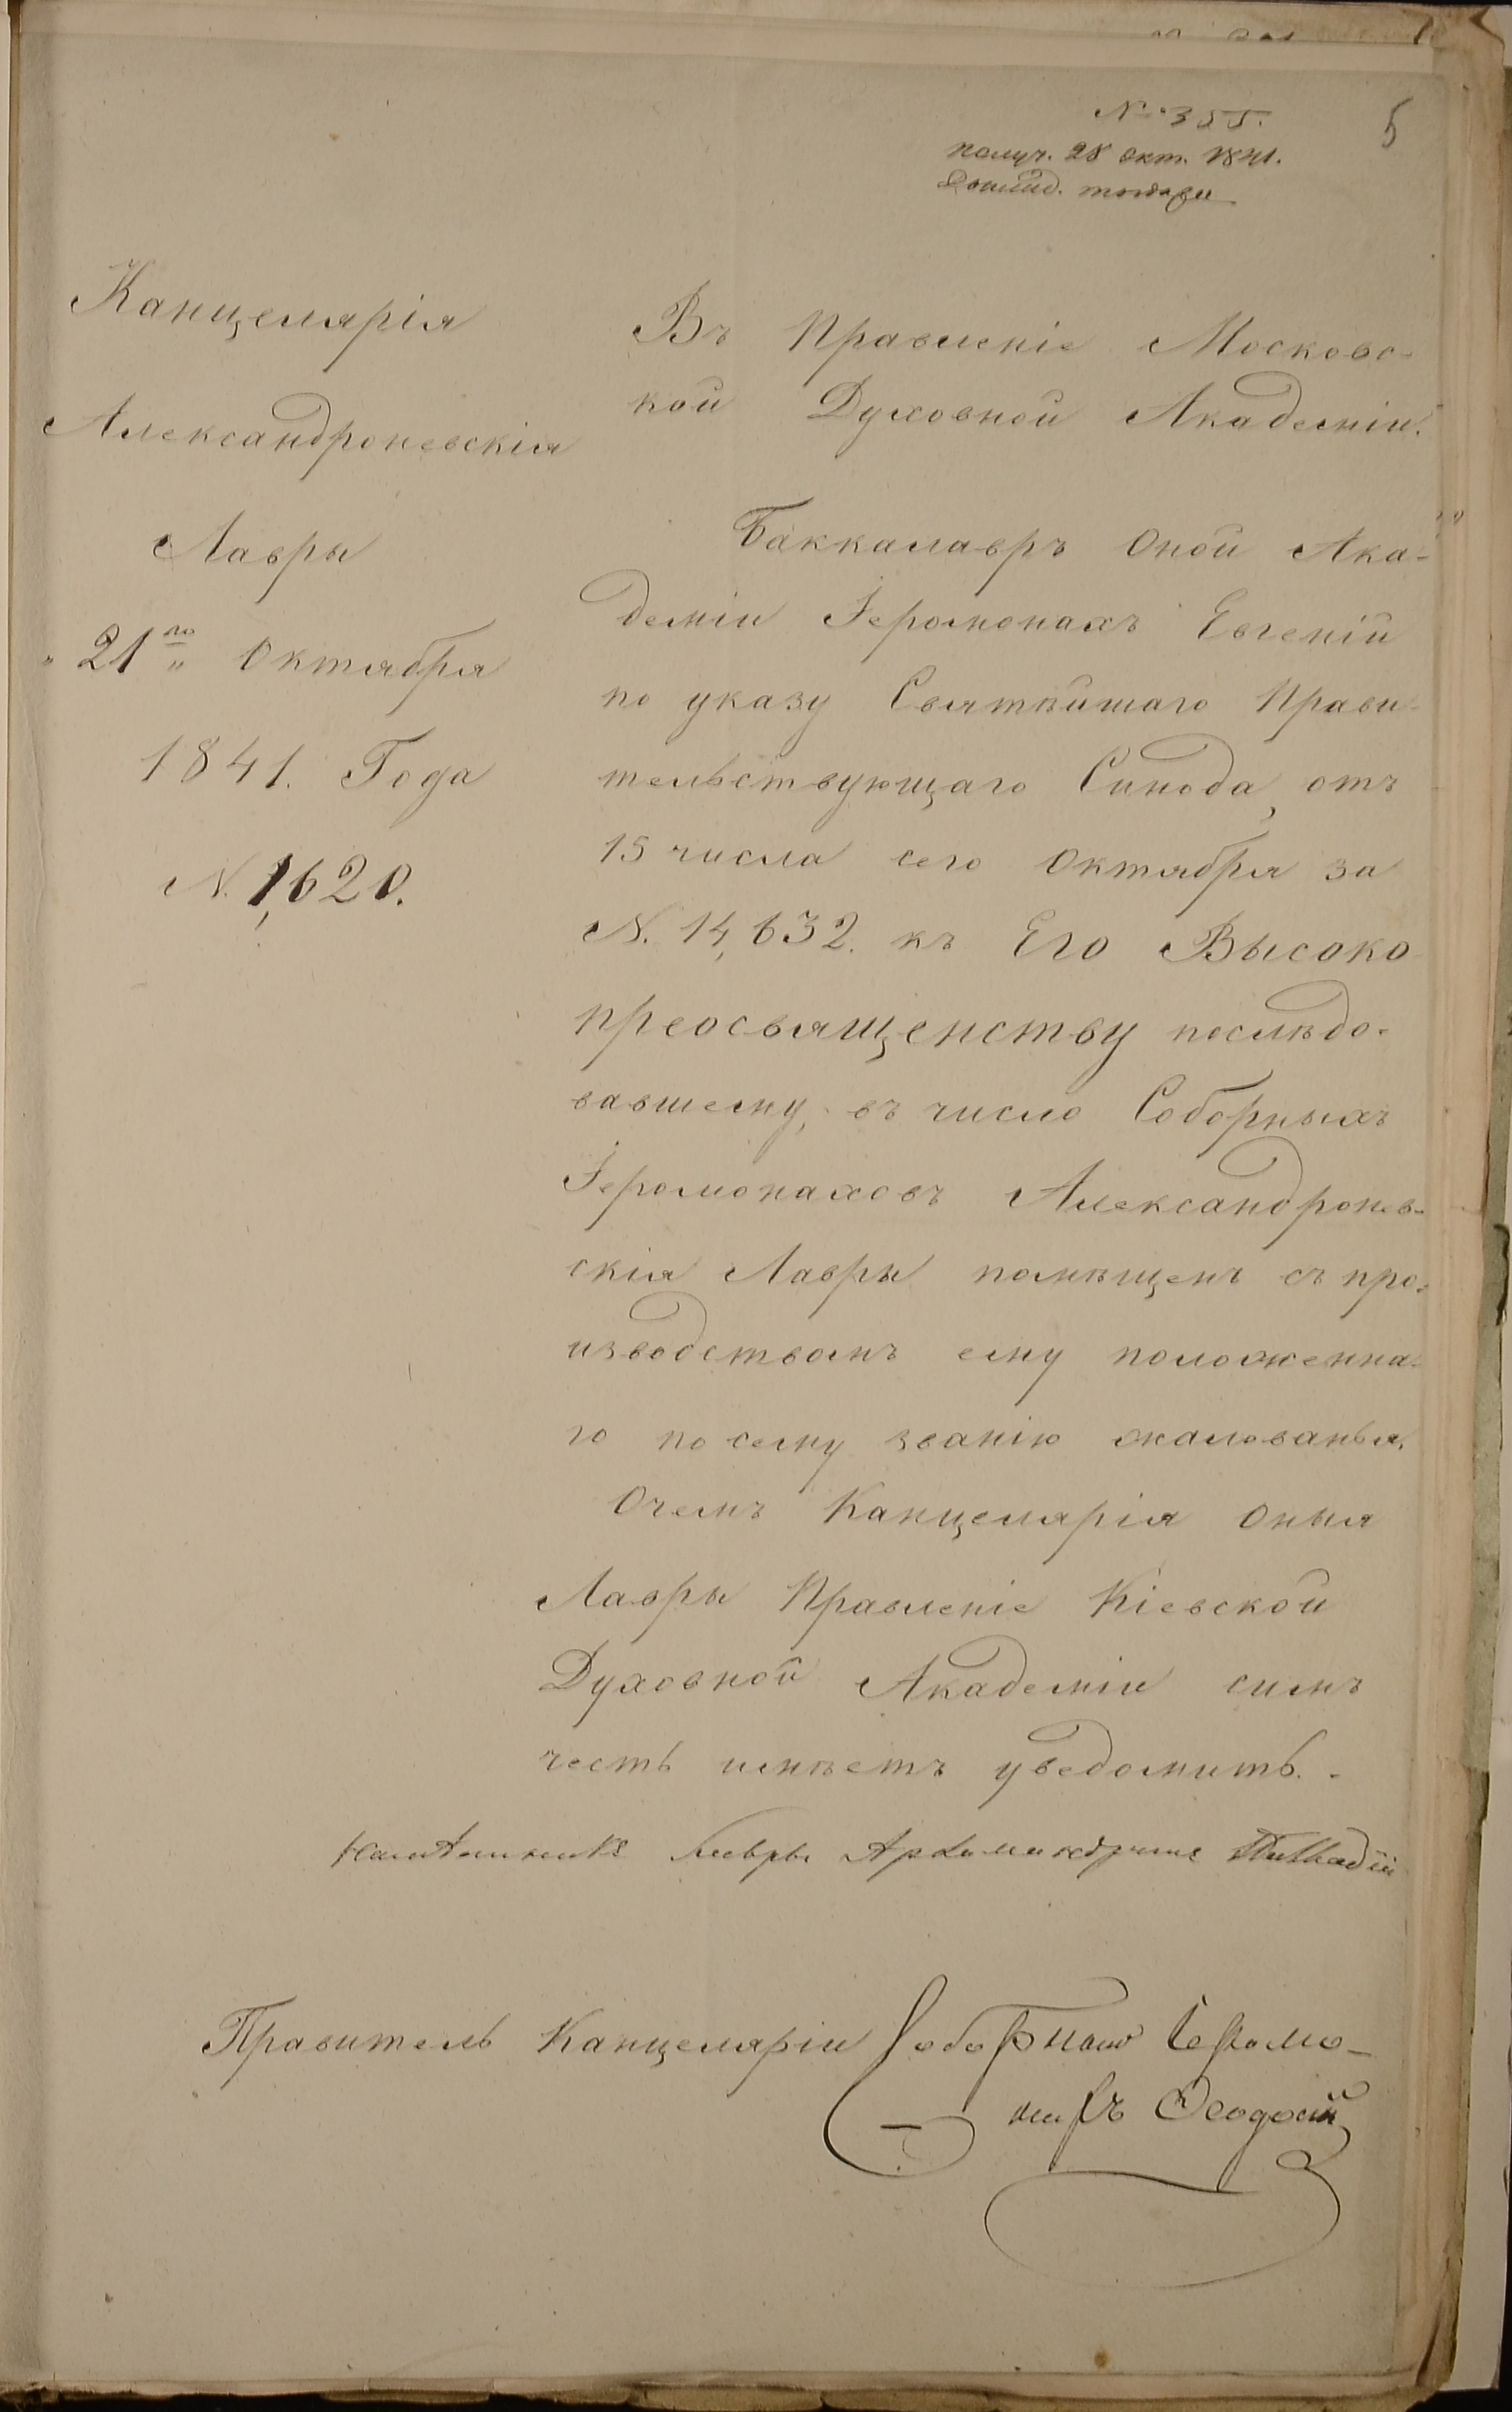 № 355.
5
получ. 28 окт. 1841.
Канцелярія
Александроневскія
Лавры
„ 21го „ Октября
1841. Года
N. 1,620.
Въ Правленіе Московс-
кой Духовной Академіи.
Баккалавръ оной Ака-
деміи Іеромонахъ Евгеній
по указу Святѣйшаго Прави-
тельствующаго Синода, отъ
15 числа сего Октября за
N. 14,632. къ Его Высоко
преосвященству послѣдо-
вавшему, въ число Соборныхъ
Іеромонаховъ Александронев-
скія Лавры помѣщенъ съ про-
изводствомъ ему положенна-
го по сему званію жалованья.
О чемъ Канцелярія оныя
Лавры Правленіе Кіевской
Духовной Академіи симъ
честь имѣетъ увѣдомить. -
Намѣстникъ Лавры Архимандритъ Палладій
Правитель Канцеляріи Соборный Іеромо-
нахъ Ѳеодосій